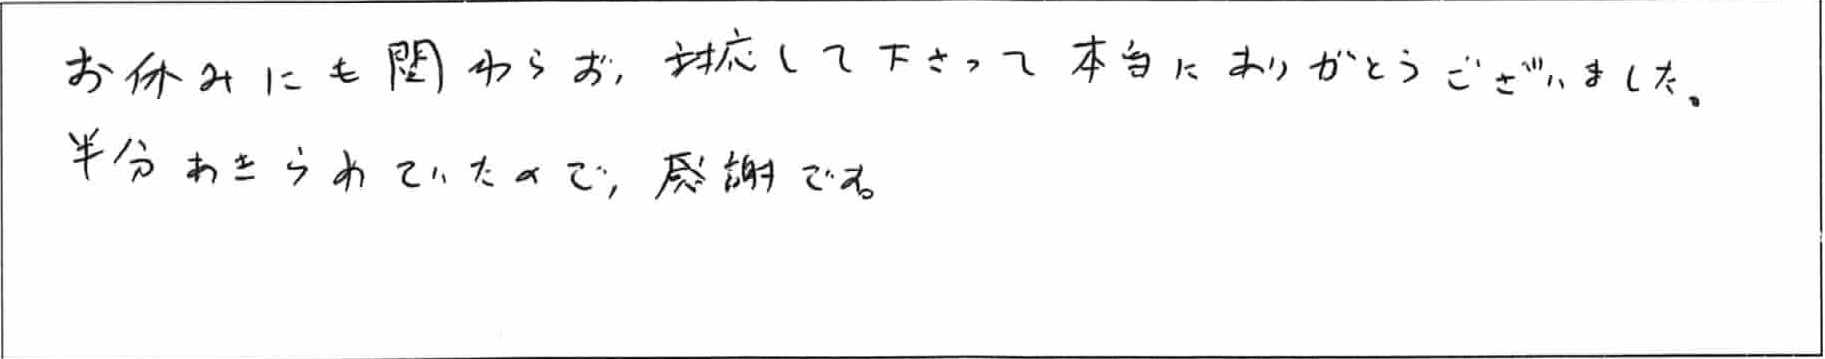 お休みにも関わらず、対応して下さって本当にありがとうございました。
半分あきらめていたので、感謝です。